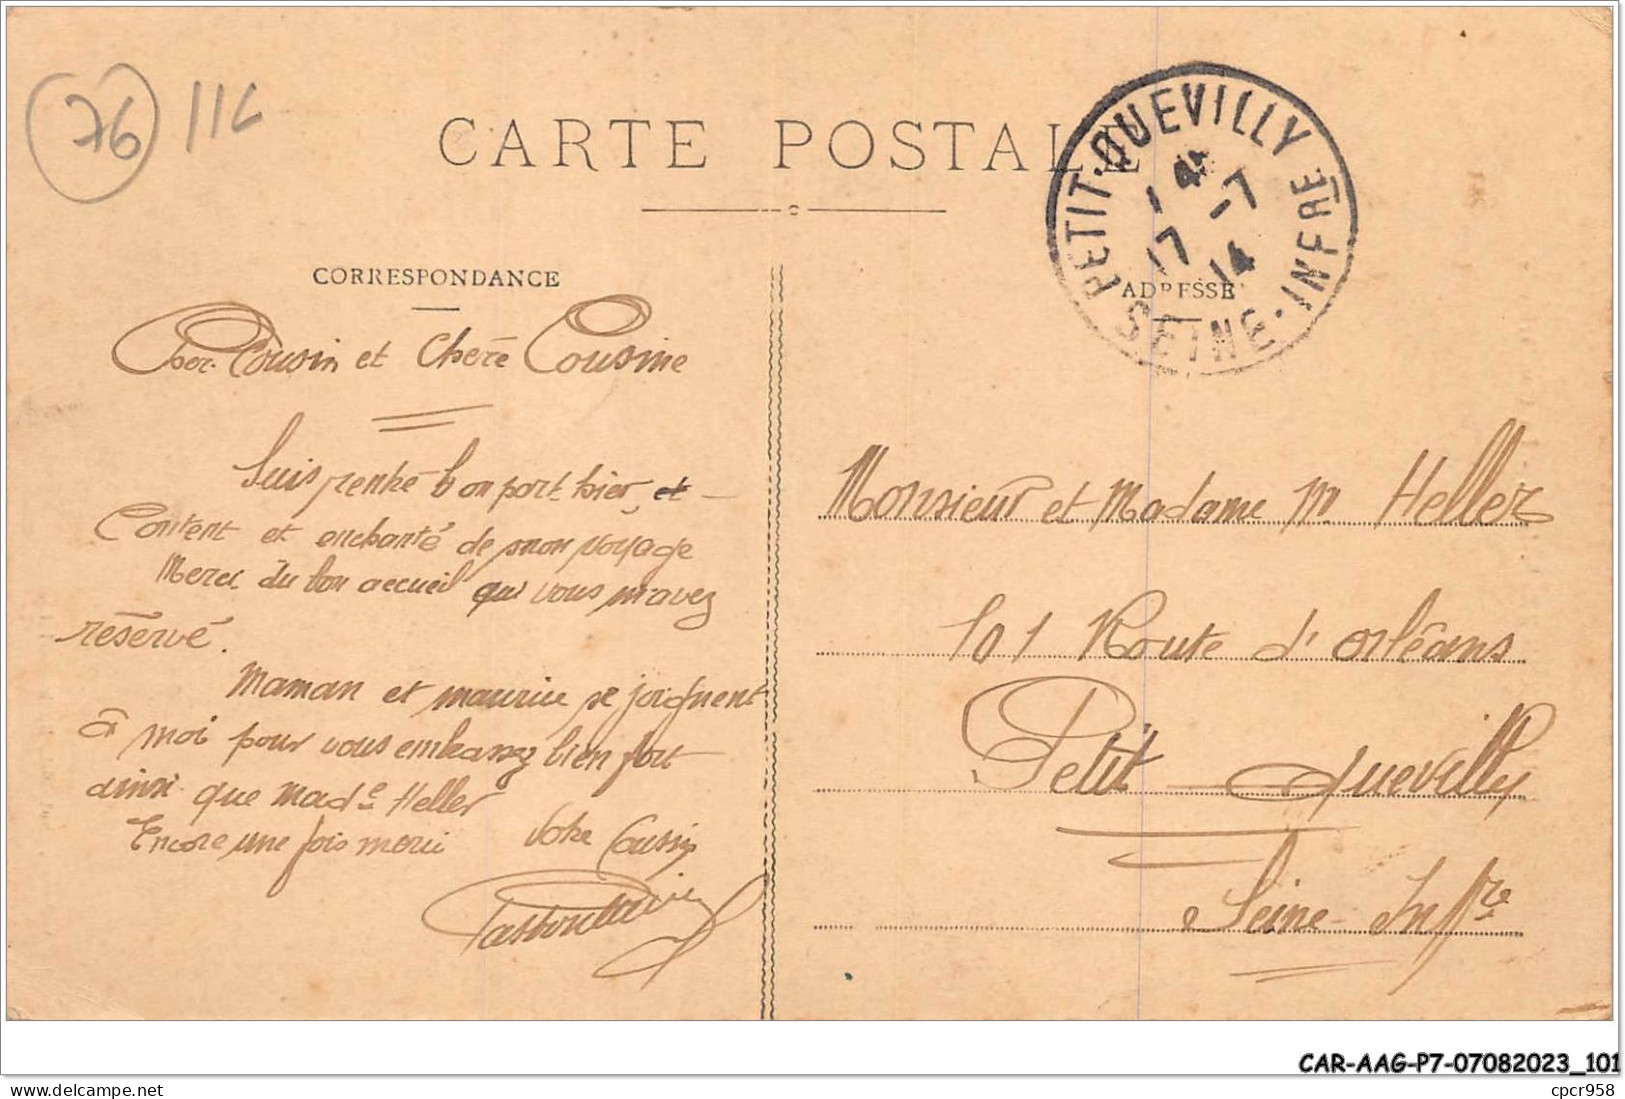 76 11C
CARTE POSTALE
PETIT-QUEVILLY
17 -7
14
SEINE-INFRE
CORRESPONDANCE
ADRESSE
Cher Cousin et Chère Cousine
Suis rentré bon port hier, et
Content et enchanté de mon voyage
Merci du bon accueil que vous m'avez
réservé.
Maman et Maurice se joignent
à moi pour vous embrasser bien fort
ainsi que Made Heller
Encore une fois merci
Votre Cousin
Monsieur et Madame M. Heller
101 Route d'Orléans
Petit Quevilly
Seine Infre
CAR-AAG-P7-07082023_101
delcampe.net
cpcr958